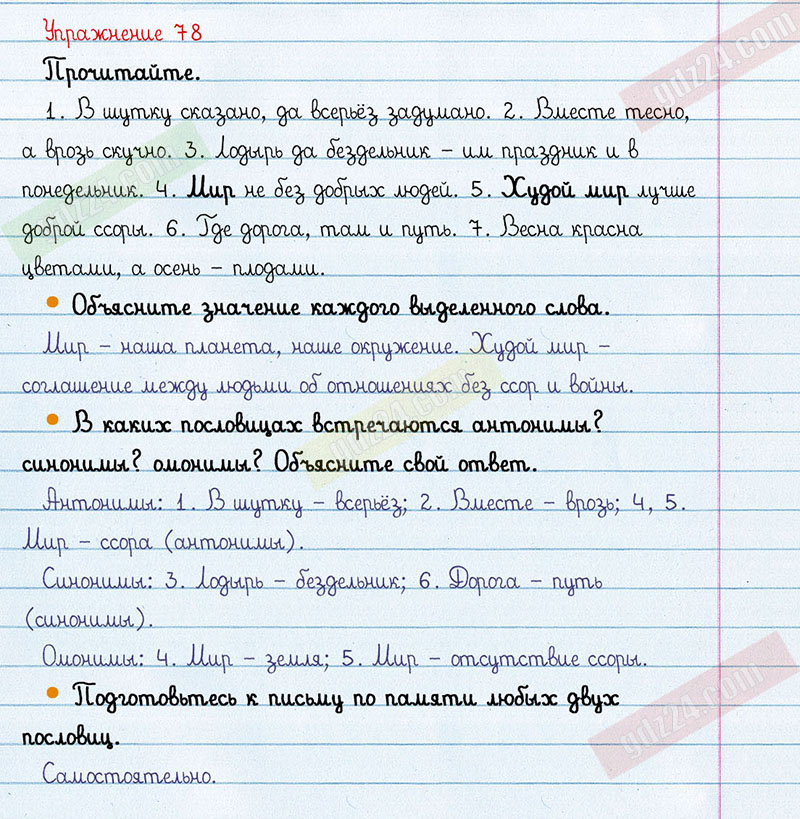 Упражнение 78
Прочитайте.
1. В шутку сказано, да всерьёз задумано. 2. Вместе тесно,
а врозь скучно. 3. Лодырь да бездельник – им праздник и в
понедельник. 4. Мир не без добрых людей. 5. Худой мир лучше
доброй ссоры. 6. Где дорога, там и путь. 7. Весна красна
цветами, а осень – плодами.
• Объясните значение каждого выделенного слова.
Мир – наша планета, наше окружение. Худой мир –
соглашение между людьми об отношениях без ссор и войны.
• В каких пословицах встречаются антонимы?
синонимы? омонимы? Объясните свой ответ.
Антонимы: 1. В шутку – всерьёз; 2. Вместе – врозь; 4, 5.
Мир – ссора (антонимы).
Синонимы: 3. Лодырь – бездельник; 6. Дорога – путь
(синонимы).
Омонимы: 4. Мир – земля; 5. Мир – отсутствие ссоры.
• Подготовьтесь к письму по памяти любых двух
пословиц.
Самостоятельно.
gdz24.com
gdz24.com
gdz24.com
gdz24.com